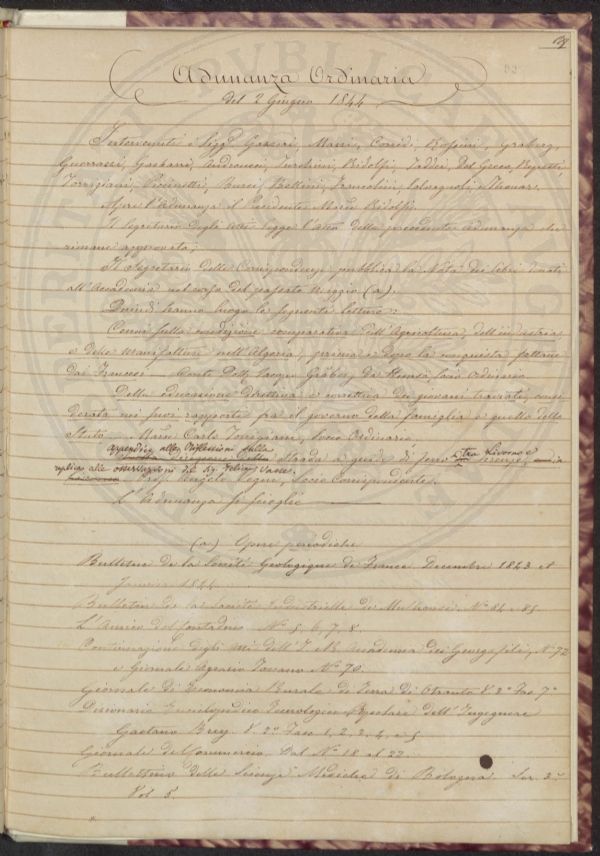 Adunanza Ordinaria
del 2 Giugno 1844
Intervenuti i Sigg.ri Gazzeri, Marri, Corridi, Rossini, Graberg,
Guerrazzi, Gazzarri, Andreucci, Turchini, Ridolfi, Taddei, Del Greco, Repetti,
Torrigiani, Piccinetti, Bucci, Bellini, Francolini, Salvagnoli, e Thouar.
Apre l'Adunanza il Presidente March. Ridolfi.
Il Segretario degli Atti legge l'atto della precedente adunanza che
rimane approvato;
Il Segretario delle Corrispondenze pubblica la Nota dei libri donati
all'Accademia nel corso del passato Maggio (a).
Quindi hanno luogo le seguenti letture:
Cenni sulla condizione comparativa dell'Agricoltura, dell'industria
e delle manifatture nell'Algeria, prima e dopo la conquista fattane
dai Francesi Conte Dott. Jacopo Gräberg da Hemsö, Socio Ordinario
Della educazione direttiva e correttiva dei giovani traviati, consi
derata nei suoi rapporti fra il governo della famiglia e quello dello
Stato March. Carlo Torrigiani, Socio Ordinario.
appendice alle Riflessioni sulla Strada a guide di ferro tra Livorno e Firenze,
replica alle osservazioni del Sig. Felice Vasse
Prof. Angelo Vegni, Socio Corrispondente.
L'Adunanza si scioglie
(a) Opere periodiche
Bulletin de la Société Geologique de France Decembre 1843 et
Janvier 1844
Bulletin de la Société Industrielle de Mulhouse. N.° 84 e 85
L'Amico del Contadino N.° 5, 6, 7, 8.
Continuazione degli Atti dell'I. e R. Accademia dei Georgofili, N.° 72
e Giornale Agrario Toscano N.° 70.
Giornale di Economia Rurale di Terra di Otranto V. 2° Fasc. 7°
Dizionario Enciclopedico Tecnologico Popolare dell'Ingegnere
Gaetano Brey. V. 2° Fasc. 1, 2, 3, 4, e 5
Giornale di Commercio. Dal N.° 18 al 22.
Bullettino delle Scienze Mediche di Bologna. Ser. 3.a
Vol. 5